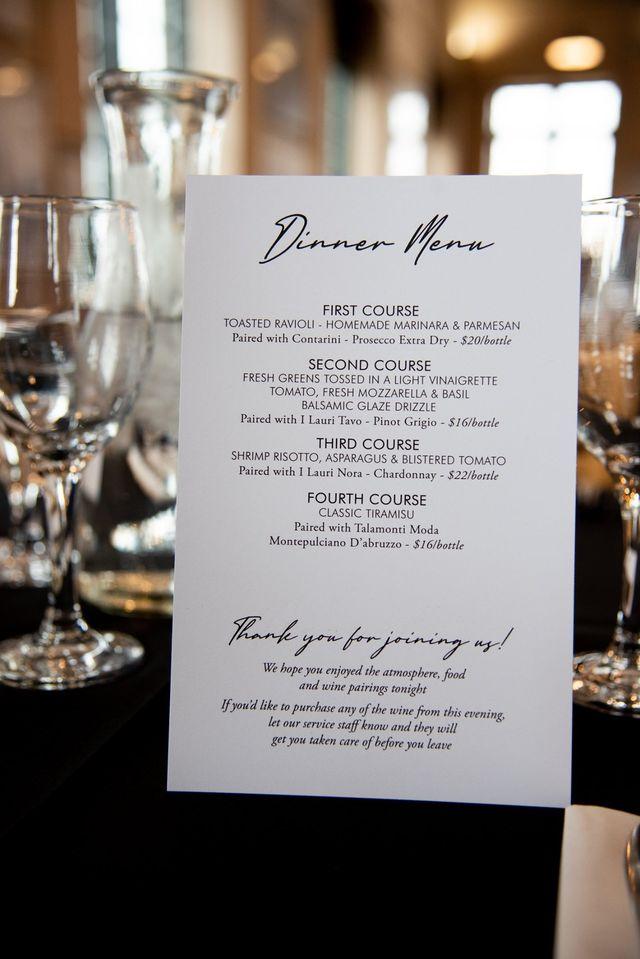 Dinner Menu
FIRST COURSE
TOASTED RAVIOLI - HOMEMADE MARINARA & PARMESAN
Paired with Contarini - Prosecco Extra Dry - $20/bottle
SECOND COURSE
FRESH GREENS TOSSED IN A LIGHT VINAIGRETTE
TOMATO, FRESH MOZZARELLA & BASIL
BALSAMIC GLAZE DRIZZLE
Paired with I Lauri Tavo - Pinot Grigio - $16/bottle
THIRD COURSE
SHRIMP RISOTTO, ASPARAGUS & BLISTERED TOMATO
Paired with I Lauri Nora - Chardonnay - $22/bottle
FOURTH COURSE
CLASSIC TIRAMISU
Paired with Talamonti Moda
Montepulciano D'abruzzo - $16/bottle
Thank you for joining us!
We hope you enjoyed the atmosphere, food
and wine pairings tonight
If you'd like to purchase any of the wine from this evening,
let our service staff know and they will
get you taken care of before you leave